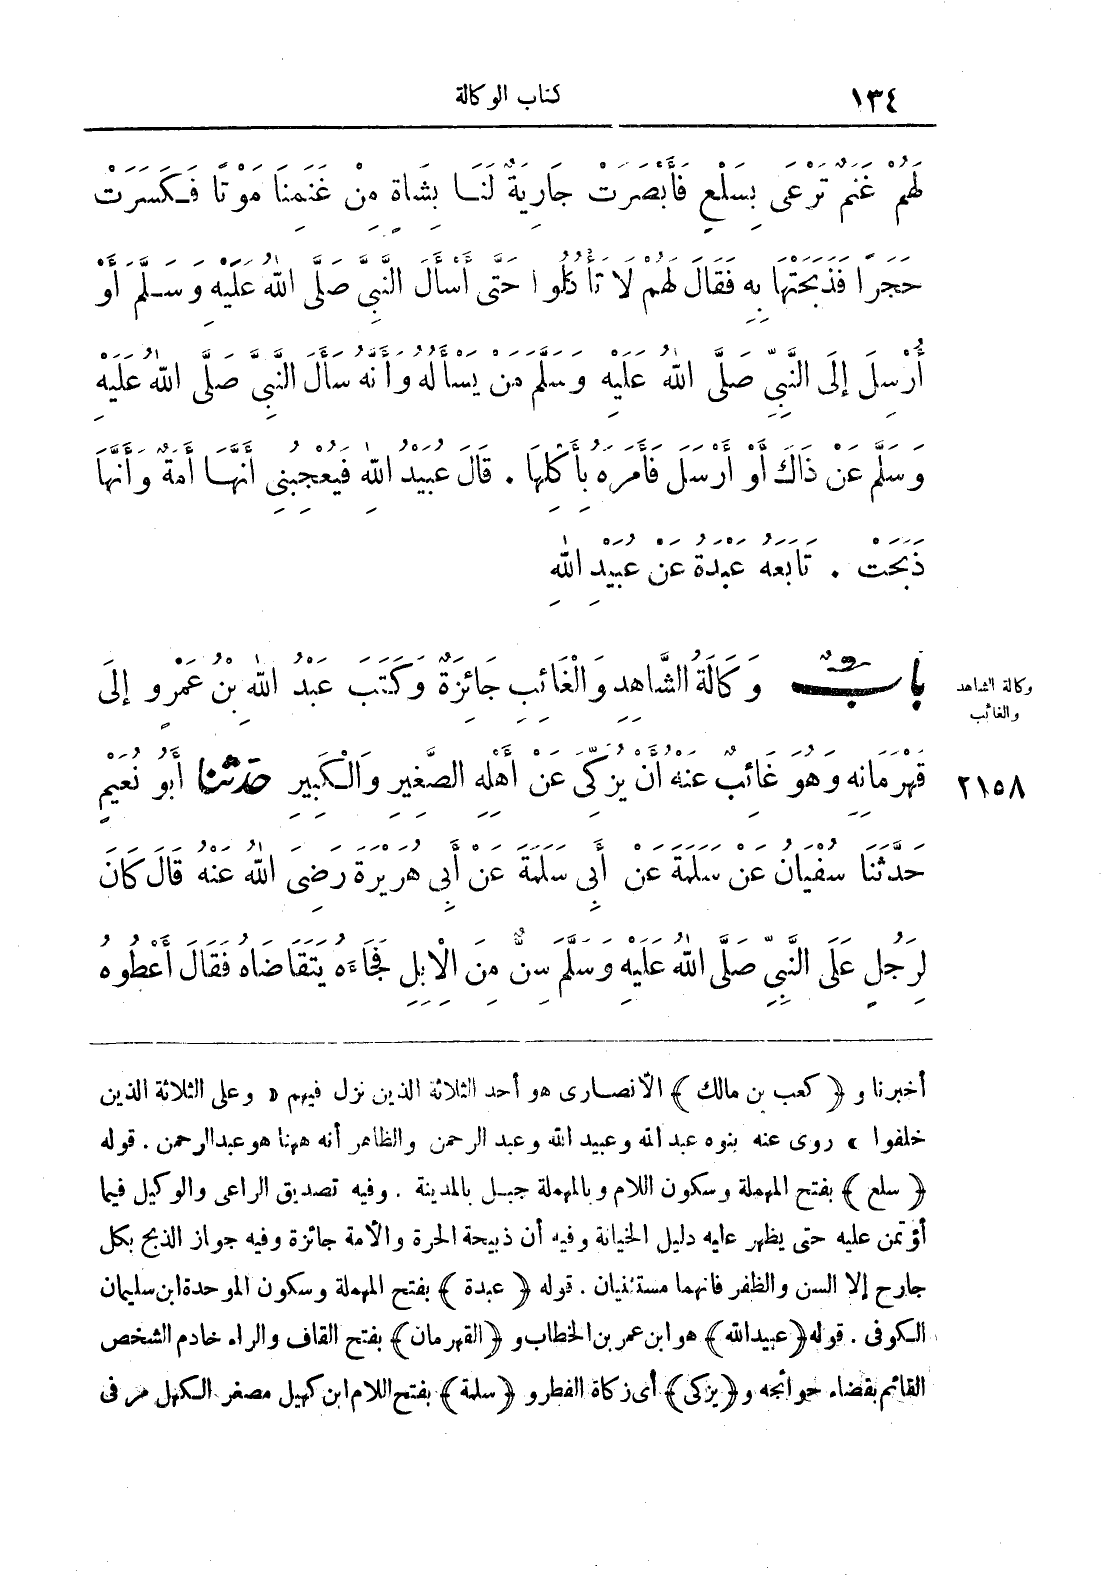 ١٣٤
كتاب الوكالة
لَهُمْ غَنَمٌ تَرْعَى بِسَلْعٍ فَأَبْصَرَتْ جَارِيَةٌ لَنَا بِشَاةٍ مِنْ غَنَمِنَا مَوْتًا فَكَسَرَتْ
حَجَرًا فَذَبَحَتْهَا بِهِ فَقَالَ لَهُمْ لَا تَأْكُلُوا حَتَّى أَسْأَلَ النَّبِيَّ صَلَّى اللهُ عَلَيْهِ وَسَلَّمَ أَوْ
أُرْسِلَ إِلَى النَّبِيِّ صَلَّى اللهُ عَلَيْهِ وَسَلَّمَ مَنْ يَسْأَلُهُ وَأَنَّهُ سَأَلَ النَّبِيَّ صَلَّى اللهُ عَلَيْهِ
وَسَلَّمَ عَنْ ذَاكَ أَوْ أَرْسَلَ فَأَمَرَهُ بِأَكْلِهَا . قَالَ عُبَيْدُ اللهِ فَيُعْجِبُنِي أَنَّهَا أَمَةٌ وَأَنَّهَا
ذَبَحَتْ . تَابَعَهُ عَبْدَةُ عَنْ عُبَيْدِ اللهِ
بابٌ وَكَالَةُ الشَّاهِدِ وَالْغَائِبِ جَائِزَةٌ وَكَتَبَ عَبْدُ اللهِ بْنُ عَمْرٍو إِلَى
وكالة الشاهد
والغائب
قَهْرَمَانِهِ وَهُوَ غَائِبٌ عَنْهُ أَنْ يُزَكِّيَ عَنْ أَهْلِهِ الصَّغِيرِ وَالْكَبِيرِ حَدَّثَنَا أَبُو نُعَيْمٍ
٢١٥٨
حَدَّثَنَا سُفْيَانُ عَنْ سَلَمَةَ عَنْ أَبِي سَلَمَةَ عَنْ أَبِي هُرَيْرَةَ رَضِيَ اللهُ عَنْهُ قَالَ كَانَ
لِرَجُلٍ عَلَى النَّبِيِّ صَلَّى اللهُ عَلَيْهِ وَسَلَّمَ سِنٌّ مِنَ الْإِبِلِ فَجَاءَهُ يَتَقَاضَاهُ فَقَالَ أَعْطُوهُ
أخبرنا و ﴿كعب بن مالك﴾ الأنصارى هو أحد الثلاثة الذين نزل فيهم « وعلى الثلاثة الذين
خلفوا » روى عنه بنوه عبد الله وعبيد الله وعبد الرحمن والظاهر أنه ههنا هو عبد الرحمن . قوله
﴿سلع﴾ بفتح المهملة وسكون اللام وبالمهملة جبل بالمدينة . وفيه تصديق الراعى والوكيل فيما
أؤتمن عليه حتى يظهر عليه دليل الخيانة وفيه أن ذبيحة الحرة والأمة جائزة وفيه جواز الذبح بكل
جارح إلا السن والظفر فانهما مستثنيان . قوله ﴿عبدة﴾ بفتح المهملة وسكون الموحدة ابن سليمان
الكوفى . قوله ﴿عبيد الله﴾ هو ابن عمر بن الخطاب و ﴿القهرمان﴾ بفتح القاف والراء خادم الشخص
القائم بقضاء حوائجه و ﴿يزكى﴾ أى زكاة الفطر و ﴿سلمة﴾ بفتح اللام ابن كهيل مصغر الكهل مر فى